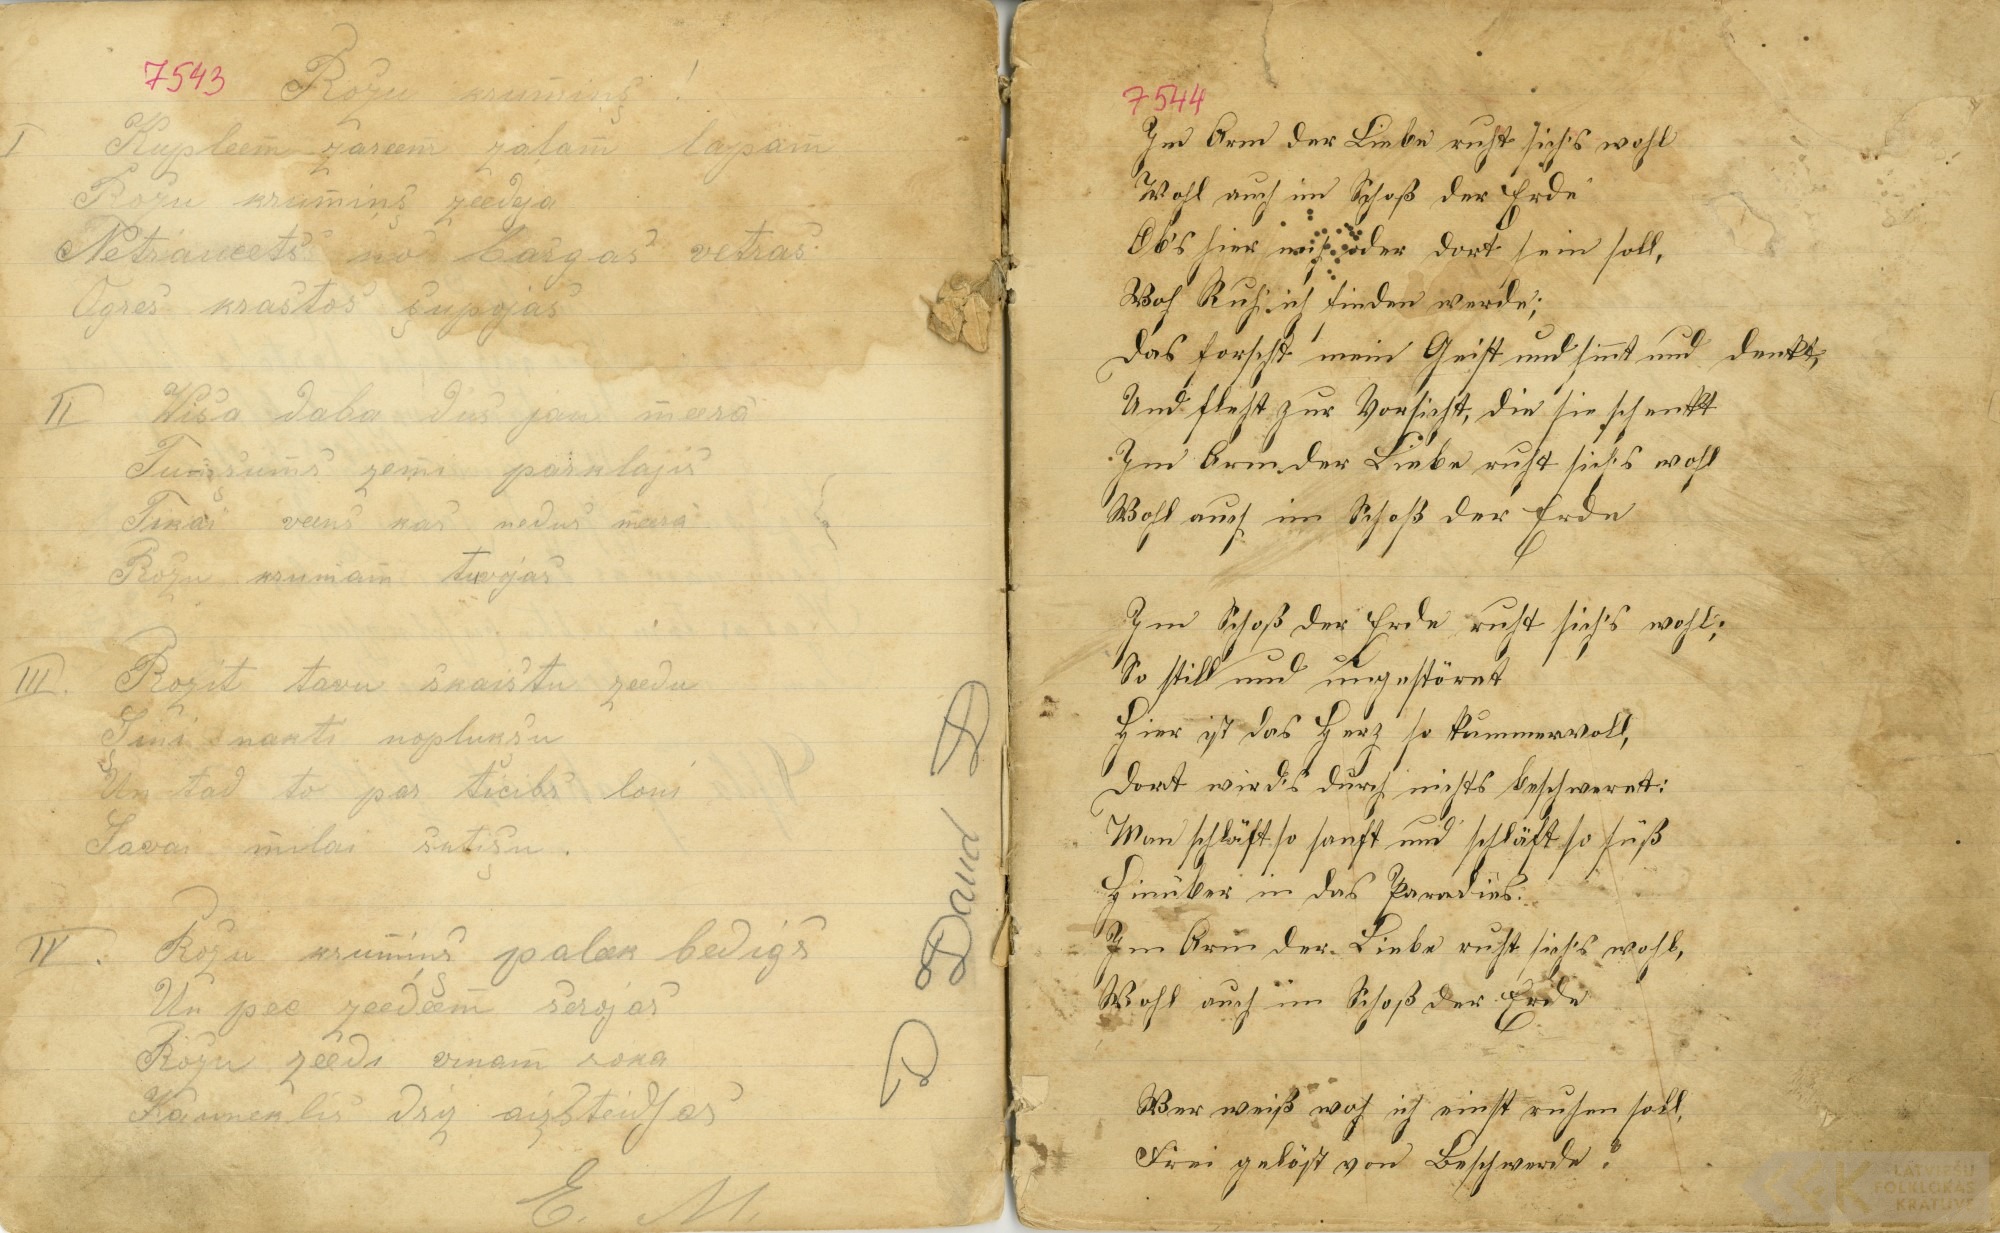 7543
Rožu krumiņş !
I Kupleem zareem zaļam lapam
Rožu krumiņş zeedeja
Netraucets no bargas vetras
Ogres krastos şupojas
II Wisa daba dus jau meera
Tumsums zemi parklajis
Tikai veens kas nedus meera
Rožu krumam tuvojas
III. Rozit tavu skaistu zeedu
Şini nakti noplukşu
Un tad to par ticibs
Savai milai sutişu.
IV. Rožu krumiņş paleek bedigs
Un pec zeedeem serojas
Rožu zeedi viņam roka
Kauneklis driz aizsteidzas
E. M.
D David D
7544
Im Arm der Liebe ruht sich's wohl
Wohl auch im Schoß der Erde
Ob's hier oder dort sein soll,
Woh Ruh' ich finden werde;
Das forscht mein Geist und sinnt und denkt,
Und fleht zur Vorsicht, die sie schenkt
Im Arm der Liebe ruht sich's wohl
Wohl auch im Schoß der Erde
Im Schoß der Erde ruht sich's wohl;
So still und ungestöret
Hier ist das Herz so kummervoll,
Dort wird's durch nichts beschweret:
Man schläft so sanft und schläft so süß
Hinüber in das Paradies.
Im Arm der Liebe ruht sich's wohl,
Wohl auch im Schoß der Erde
Wer weiß woh ich einst ruhen soll,
Frei gelößt von Beschwerde?
LATVIEŠU
FOLKLORAS
KRĀTUVE